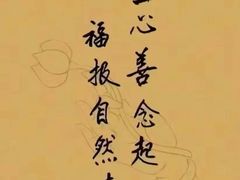 心善念起
福报自然